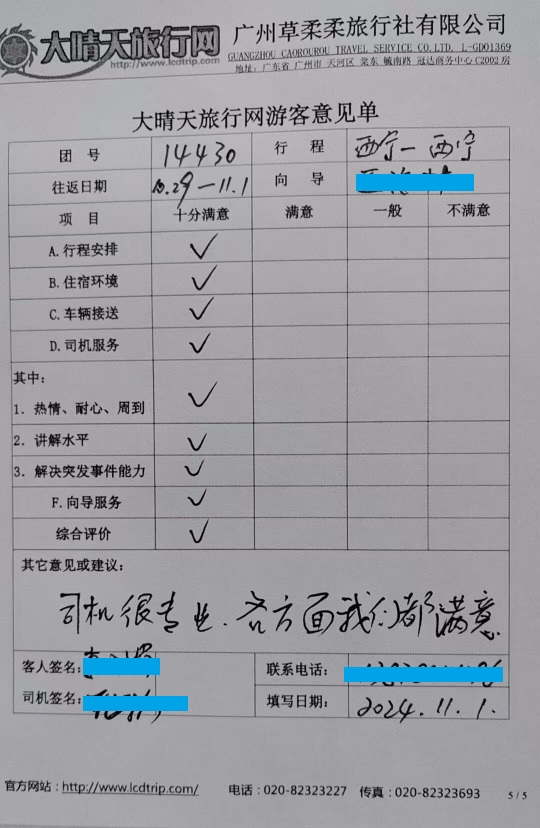 大晴天旅行网
http://www.lcdtrip.com/
广州草柔柔旅行社有限公司
GUANGZHOU CAOROUROU TRAVEL SERVICE CO.LTD. L-GD01369
地址：广东省 广州市 天河区 棠东 毓南路 冠达商务中心C2002房
大晴天旅行网游客意见单
团 号 14430 行 程 西宁一西宁
往返日期 10.29—11.1 向 导
项 目 十分满意 满意 一般 不满意
A.行程安排 ✓
B.住宿环境 ✓
C.车辆接送 ✓
D.司机服务 ✓
其中：
1. 热情、耐心、周到 ✓
2. 讲解水平 ✓
3. 解决突发事件能力 ✓
F.向导服务 ✓
综合评价 ✓
其它意见或建议：
司机很专业、各方面我们都满意
客人签名： 联系电话：
司机签名： 填写日期： 2024.11.1.
官方网站：http://www.lcdtrip.com/ 电话：020-82323227 传真：020-82323693 5/5